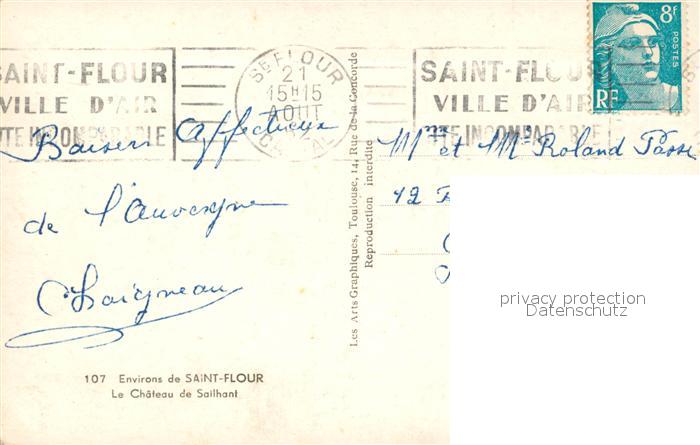 SAINT-FLOUR
VILLE D'AIR
St FLOUR
21
15H15
AOUT
CANTAL
SAINT-FLOU
VILLE D'AIR
8f
POSTES
RF
Baisers Affectueux
de l'Auvergne
Chaigneau
Mme et Mr Roland
12
Les Arts Graphiques, Toulouse, 14, Rue de la Concorde
Reproduction interdite
privacy protection
Datenschutz
107 Environs de SAINT-FLOUR
Le Château de Sailhant